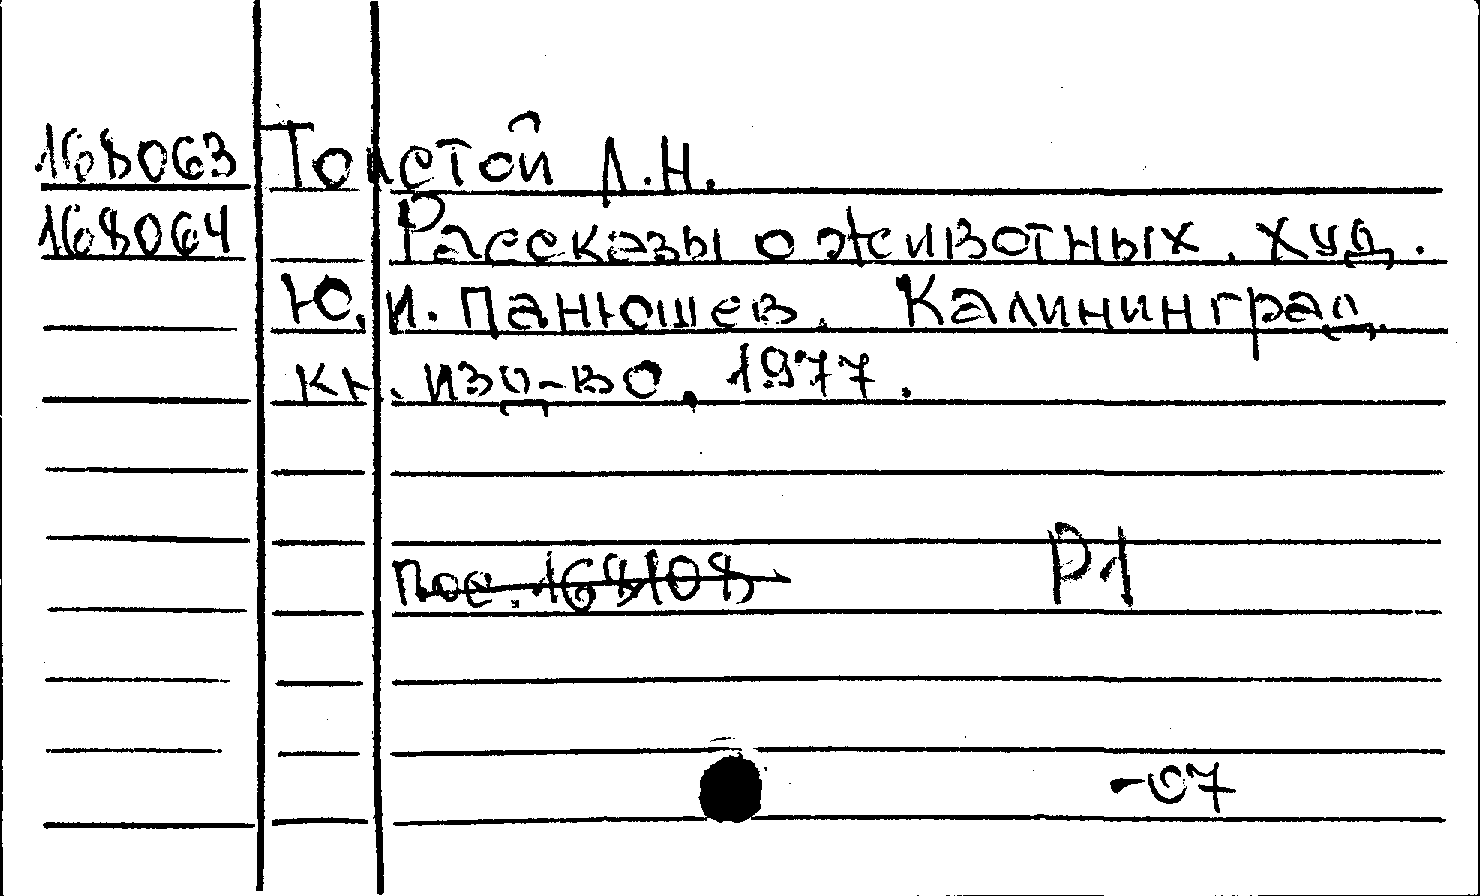 168063 Толстой Л.Н.
168064 Рассказы о животных. Худ.
Ю.И. Панюшев. Калининград,
кн. изд-во, 1977.
Пос. 168108 Р1
-07